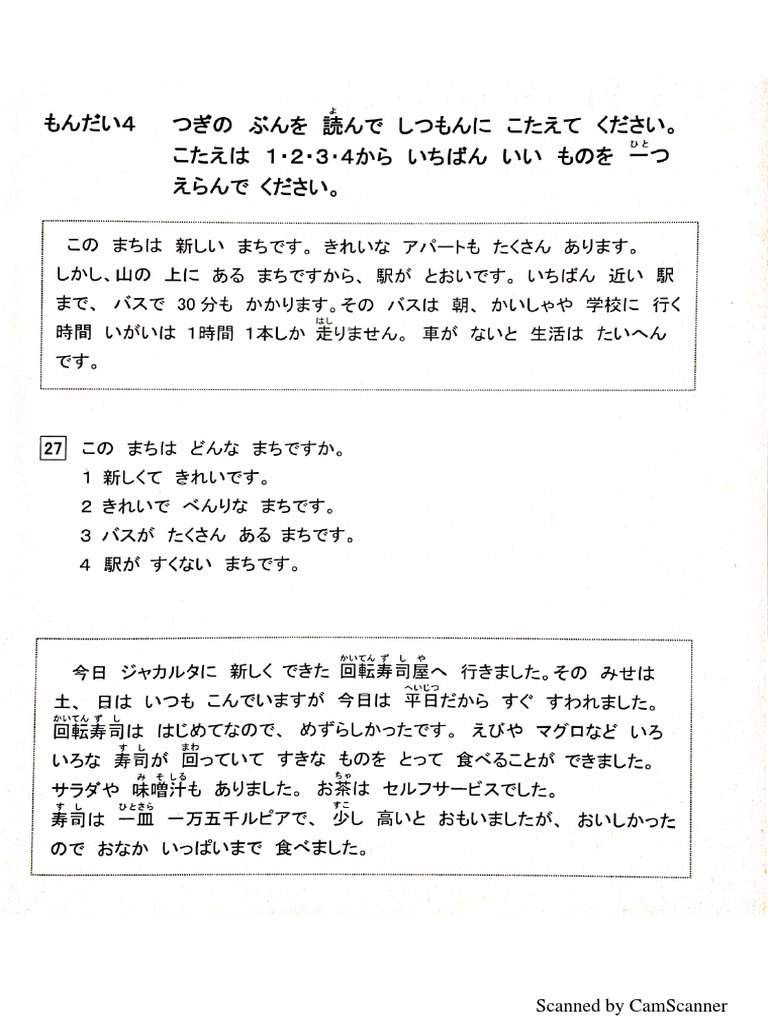 もんだい4　つぎの ぶんを 読んで しつもんに こたえて ください。
こたえは 1・2・3・4から いちばん いい ものを 一つ
えらんで ください。
この まちは 新しい まちです。 きれいな アパートも たくさん あります。
しかし、山の 上に ある まちですから、 駅が とおいです。 いちばん 近い 駅
まで、 バスで 30分も かかります。その バスは 朝、 かいしゃや 学校に 行く
時間 いがいは 1時間 1本しか 走りません。 車が ないと 生活は たいへん
です。
27 この まちは どんな まちですか。
1 新しくて きれいです。
2 きれいで べんりな まちです。
3 バスが たくさん ある まちです。
4 駅が すくない まちです。
今日 ジャカルタに 新しく できた 回転寿司屋へ 行きました。その みせは
土、 日は いつも こんでいますが 今日は 平日だから すぐ すわれました。
回転寿司は はじめてなので、 めずらしかったです。 えびや マグロなど いろ
いろな 寿司が 回っていて すきな ものを とって 食べることが できました。
サラダや 味噌汁も ありました。 お茶は セルフサービスでした。
寿司は 一皿 一万五千ルピアで、 少し 高いと おもいましたが、 おいしかった
ので おなか いっぱいまで 食べました。
Scanned by CamScanner